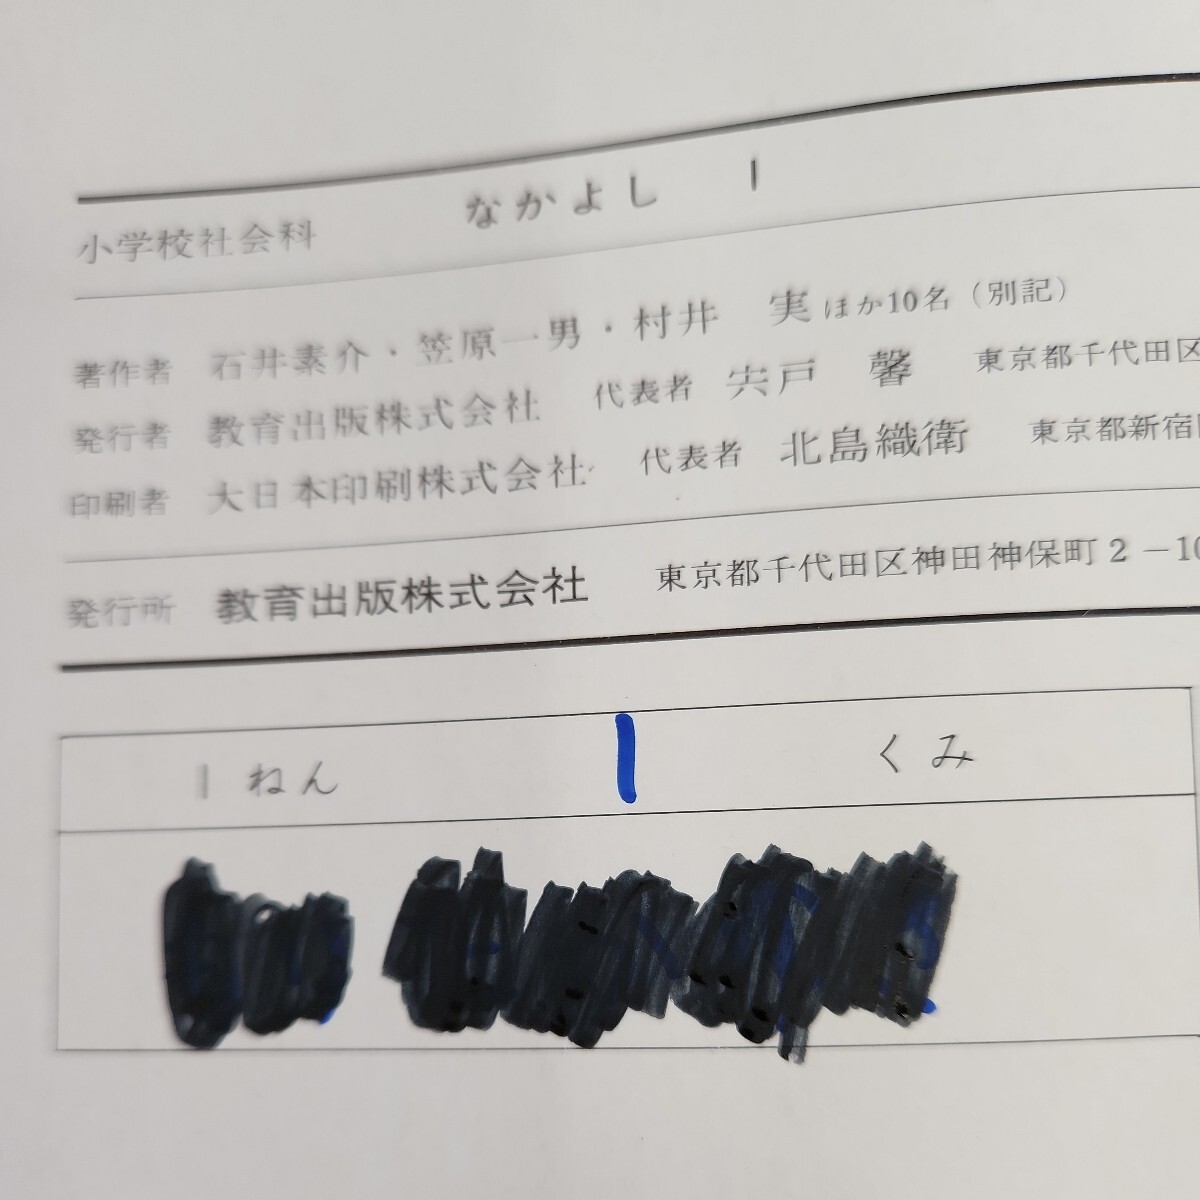 小学校社会科 なかよし 1
著作者 石井素介・笠原一男・村井 実 ほか10名(別記)
発行者 教育出版株式会社 代表者 宍戸 馨 東京都千代田区
印刷者 大日本印刷株式会社 代表者 北島織衛 東京都新宿
発行所 教育出版株式会社 東京都千代田区神田神保町2-10
1ねん 1 くみ